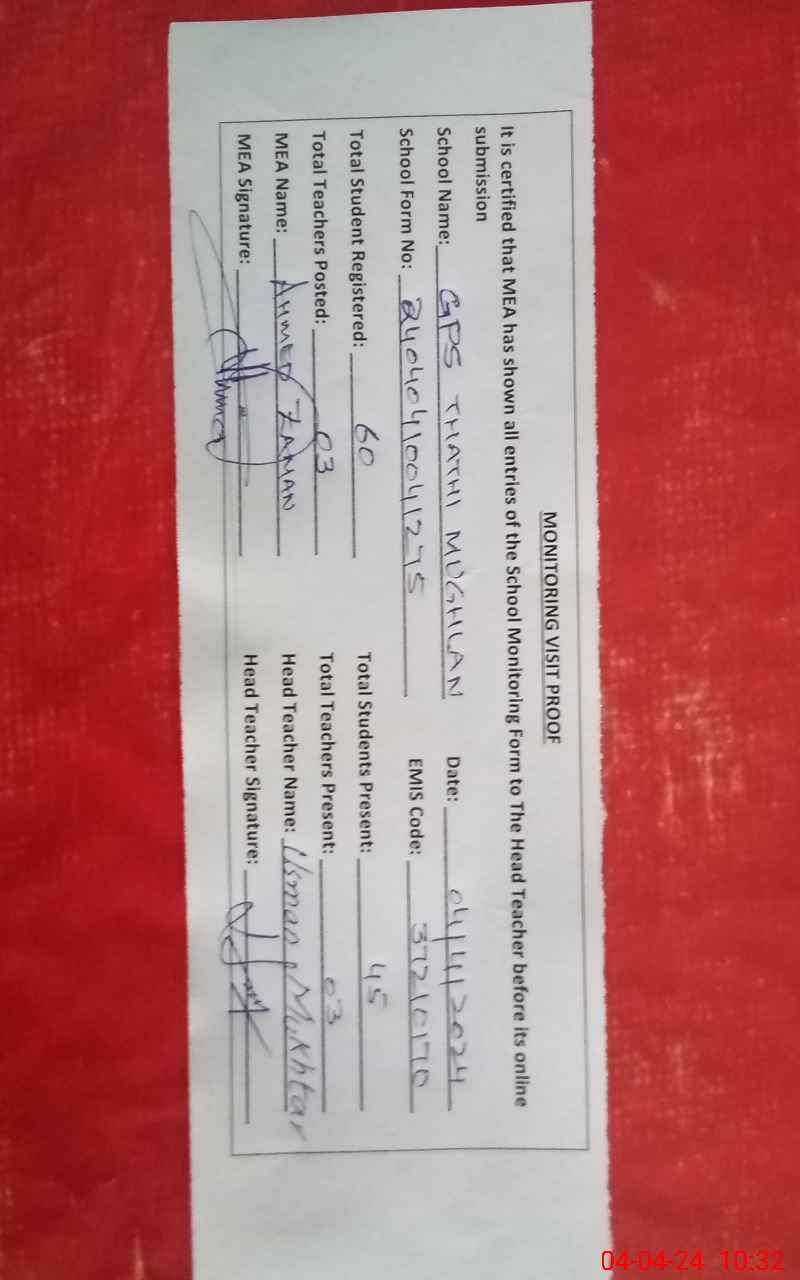 MONITORING VISIT PROOF
It is certified that MEA has shown all entries of the School Monitoring Form to The Head Teacher before its online
submission
School Name: GPS THATHI MUGHLAN Date: 04/4/2024
School Form No: 24040410041275 EMIS Code: 37210170
Total Student Registered: 60 Total Students Present: 45
Total Teachers Posted: 03 Total Teachers Present: 03
MEA Name: AHMED ZAMAN Head Teacher Name: Usman Mukhtar
MEA Signature: Head Teacher Signature:
04-04-24 10:32